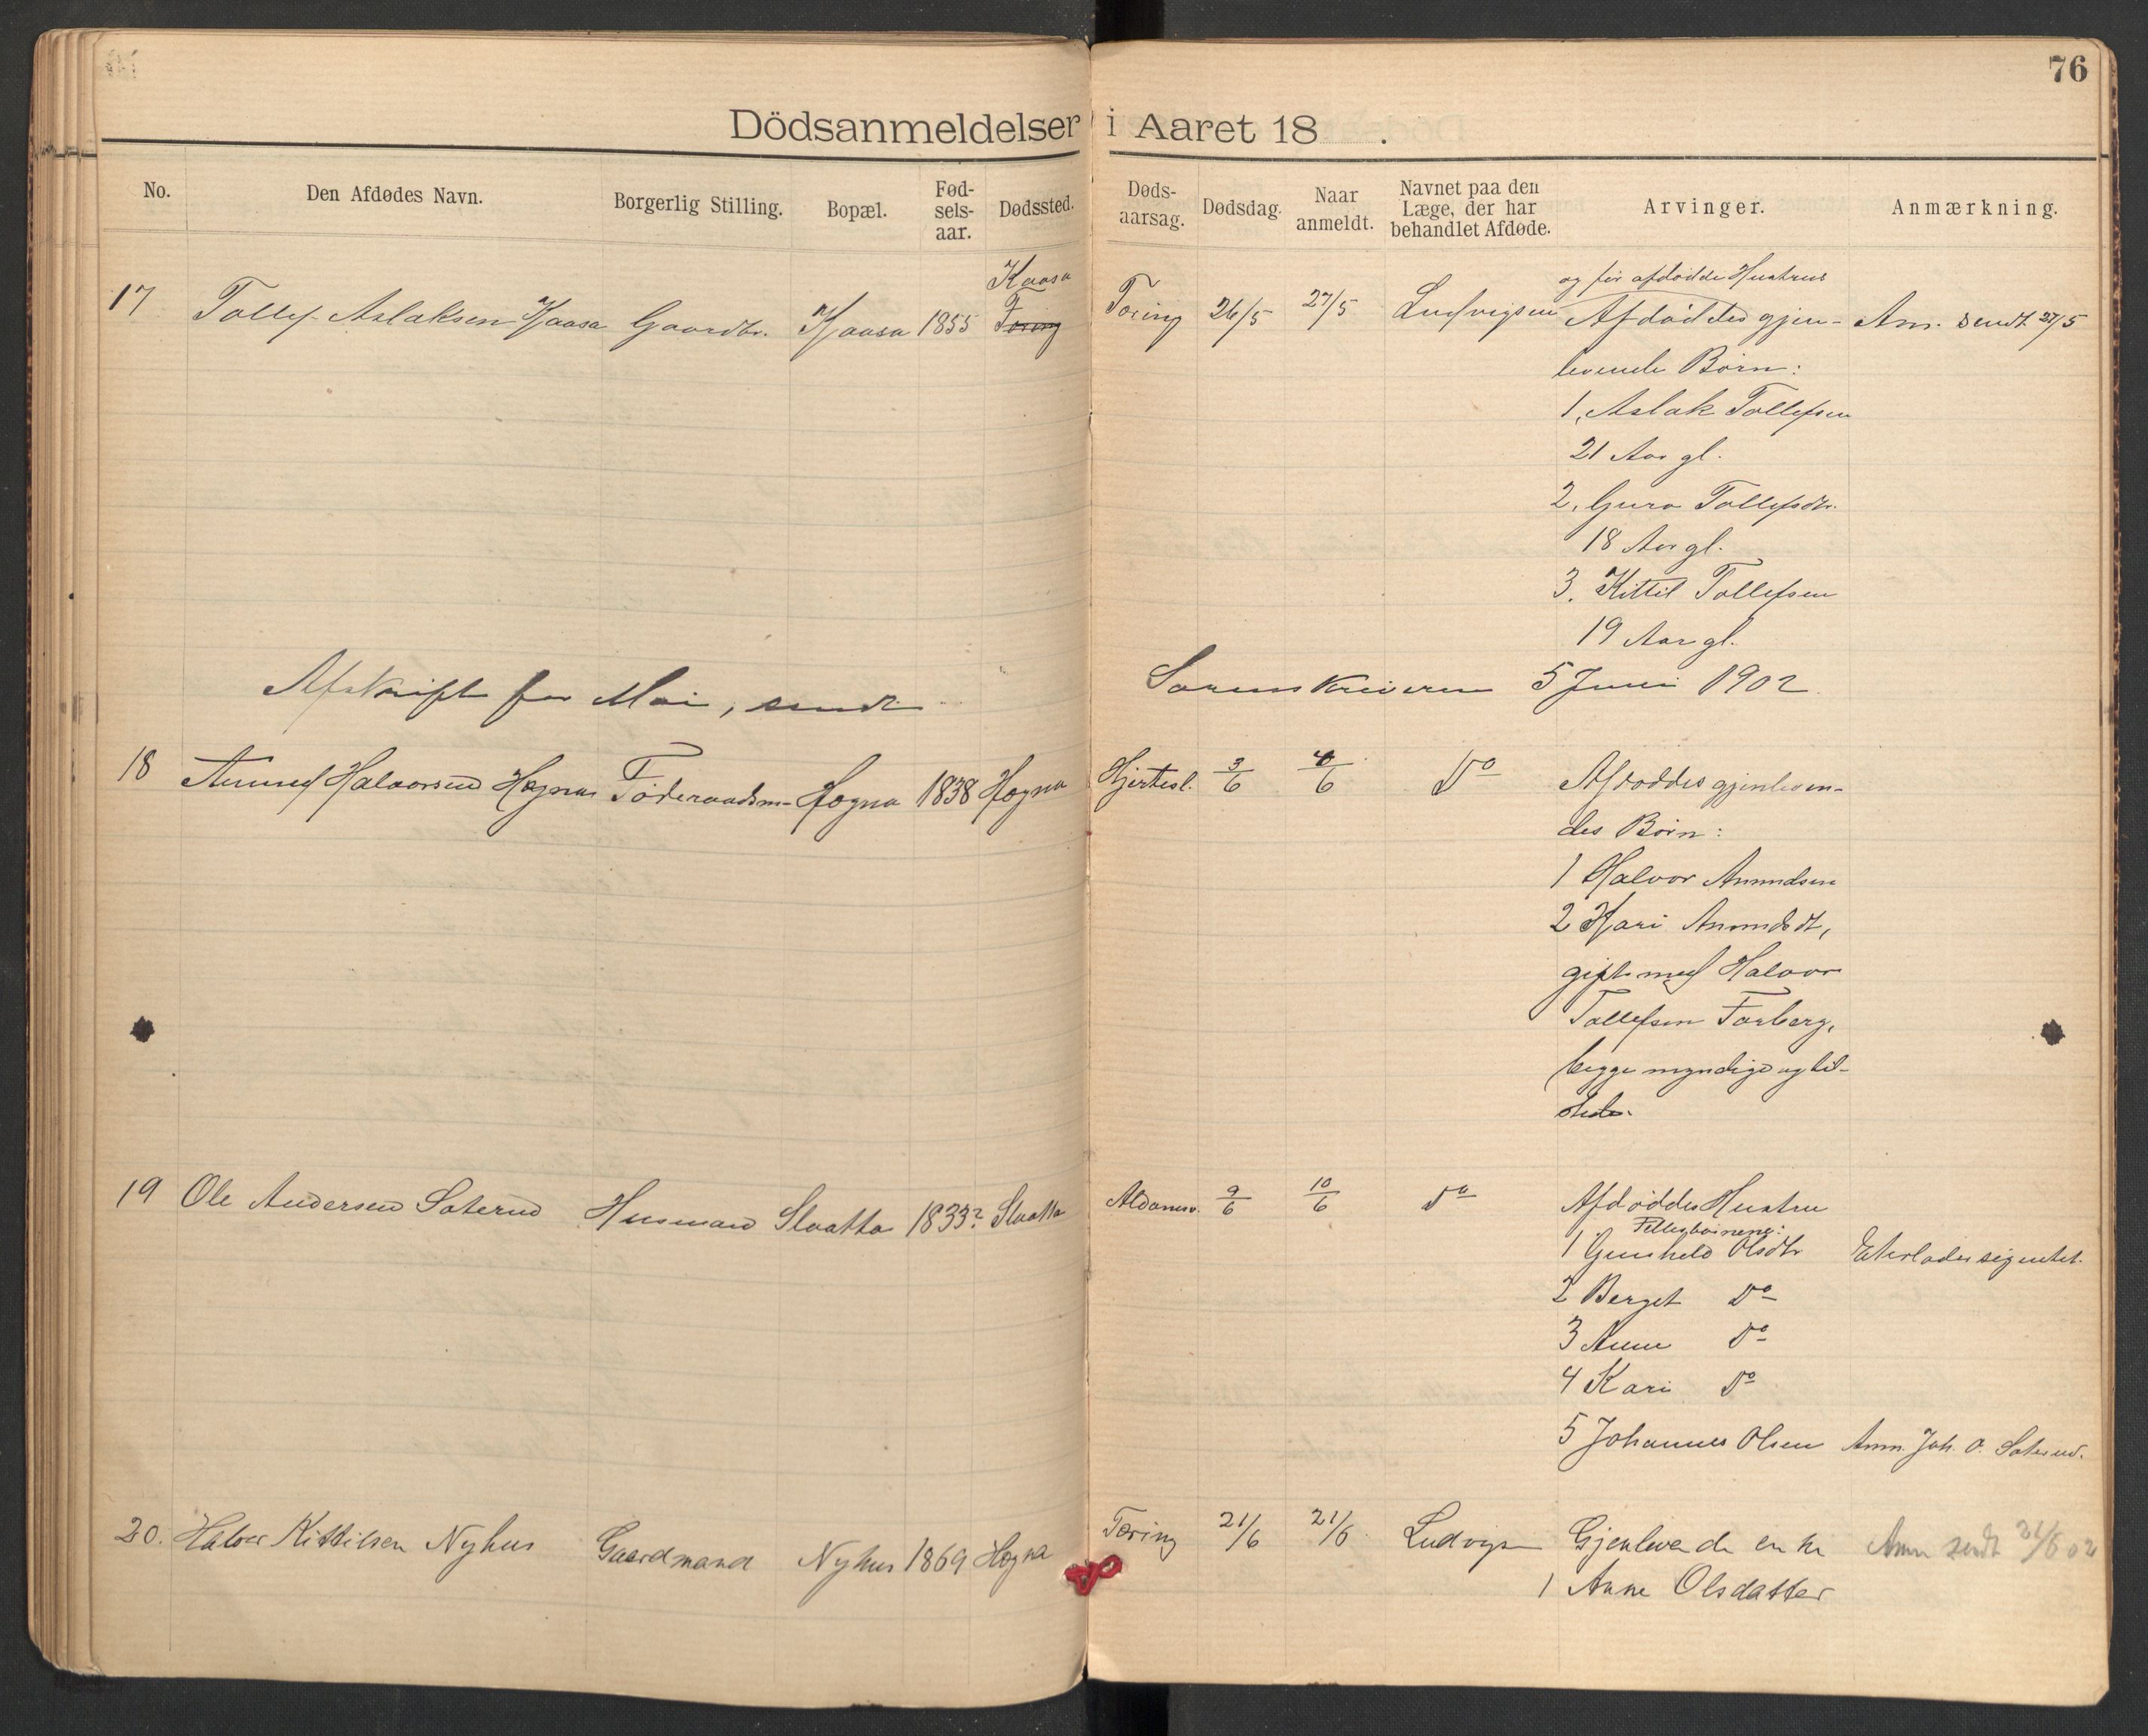 76
Dödsanmeldelser i Aaret 18 .
No. Den Afdødes Navn. Borgerlig Stilling. Bopæl. Fød-sels-aar. Dødssted. Døds-aarsag. Dødsdag. Naar anmeldt. Navnet paa den Læge, der har behandlet Afdøde. Arvinger. Anmærkning.
Kaasa og før afdødde Hustrus
17 Tollef Aslaksen Kaasa Gaardbr. Kaasa 1855 Tæring Tæring 26/5 27/5 Ludvigsen Afdöddes gjen- Anm. sendt 27/5
levende Börn:
1, Aslak Tollefsen
21 Aar gl.
2, Guro Tollefsdtr.
18 Aar gl.
3. Kittil Tollefsen
19 Aar gl.
Afskrift for Mai, sendt Sorenskriveren 5 Juni 1902
18 Amund Halvorsen Høgna Föderaadsm. Høgna 1838 Høgna Hjertesl. 3/6 4/6 Do Afdøddes gjenleven-
des Börn:
1 Halvor Amundsen
2 Kari Amundsdt,
gift med Halvor
Tollefsen Forberg,
begge myndige og til-
stede.
19 Ole Andersen Saterud Husmand Slaatta 1833? Slaatta Aldersv. 9/6 10/6 Do Afdöddes Hustru
Fellesbörnene:
1 Gunhild Olsdtr Efterlades sig intet.
2 Berget Do
3 Anne Do
4 Kari Do
5 Johannes Olsen Anm. Joh. O. Saterud.
20. Halvor Kittilsen Nyhus Gaardmand Nyhus 1869 Høgna Tæring 21/6 21/6 Ludvigsen Gjenlevende enke Anm sendt 21/6 02
1 Anne Olsdatter